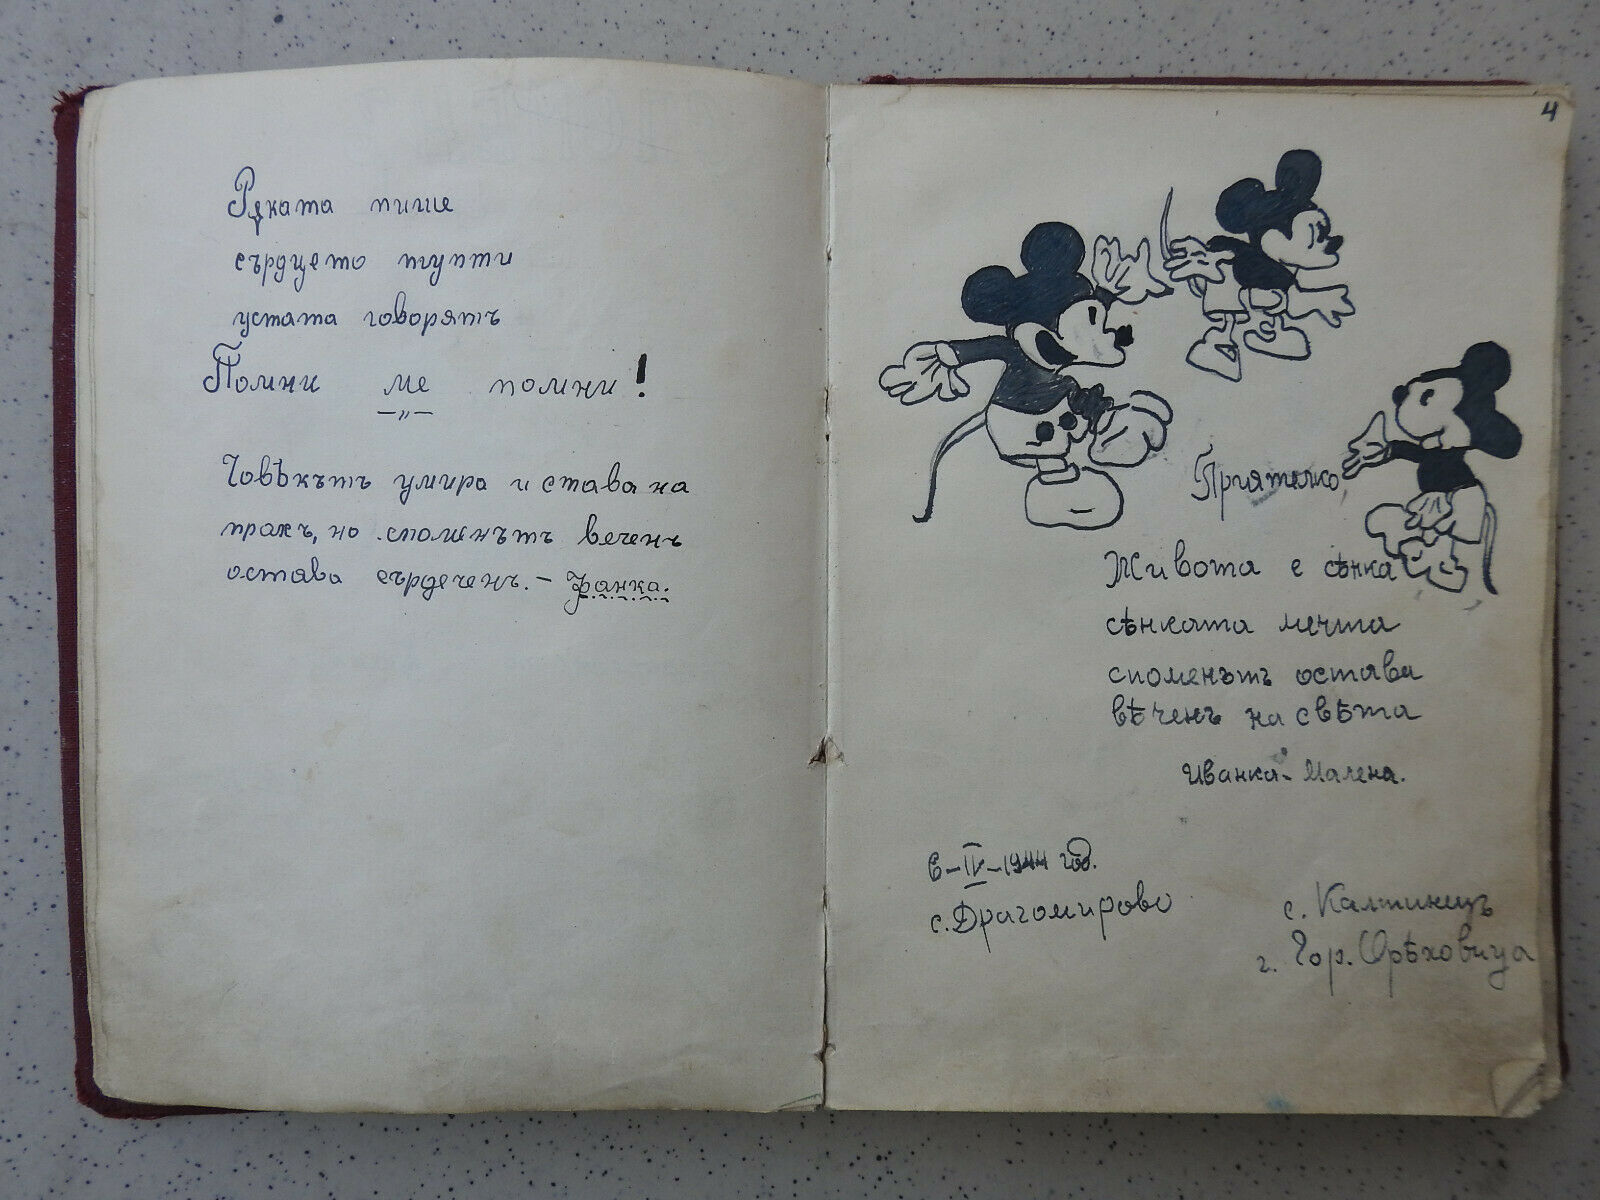 Рѫката пише
сърдцето тупти
устата говорятъ
Помни ме помни!
—„—
Човѣкътъ умира и става на
прахъ, но споменътъ веченъ
остава сърдеченъ. – Фанка.
4
Приятелко,
Живота е сѣнка
сѣнката мечта
споменътъ остава
вѣченъ на свѣта
Иванка - Малена.
6-IV-1944 год.
с. Драгомирово
с. Калтинецъ
г. Гор. Орѣховица